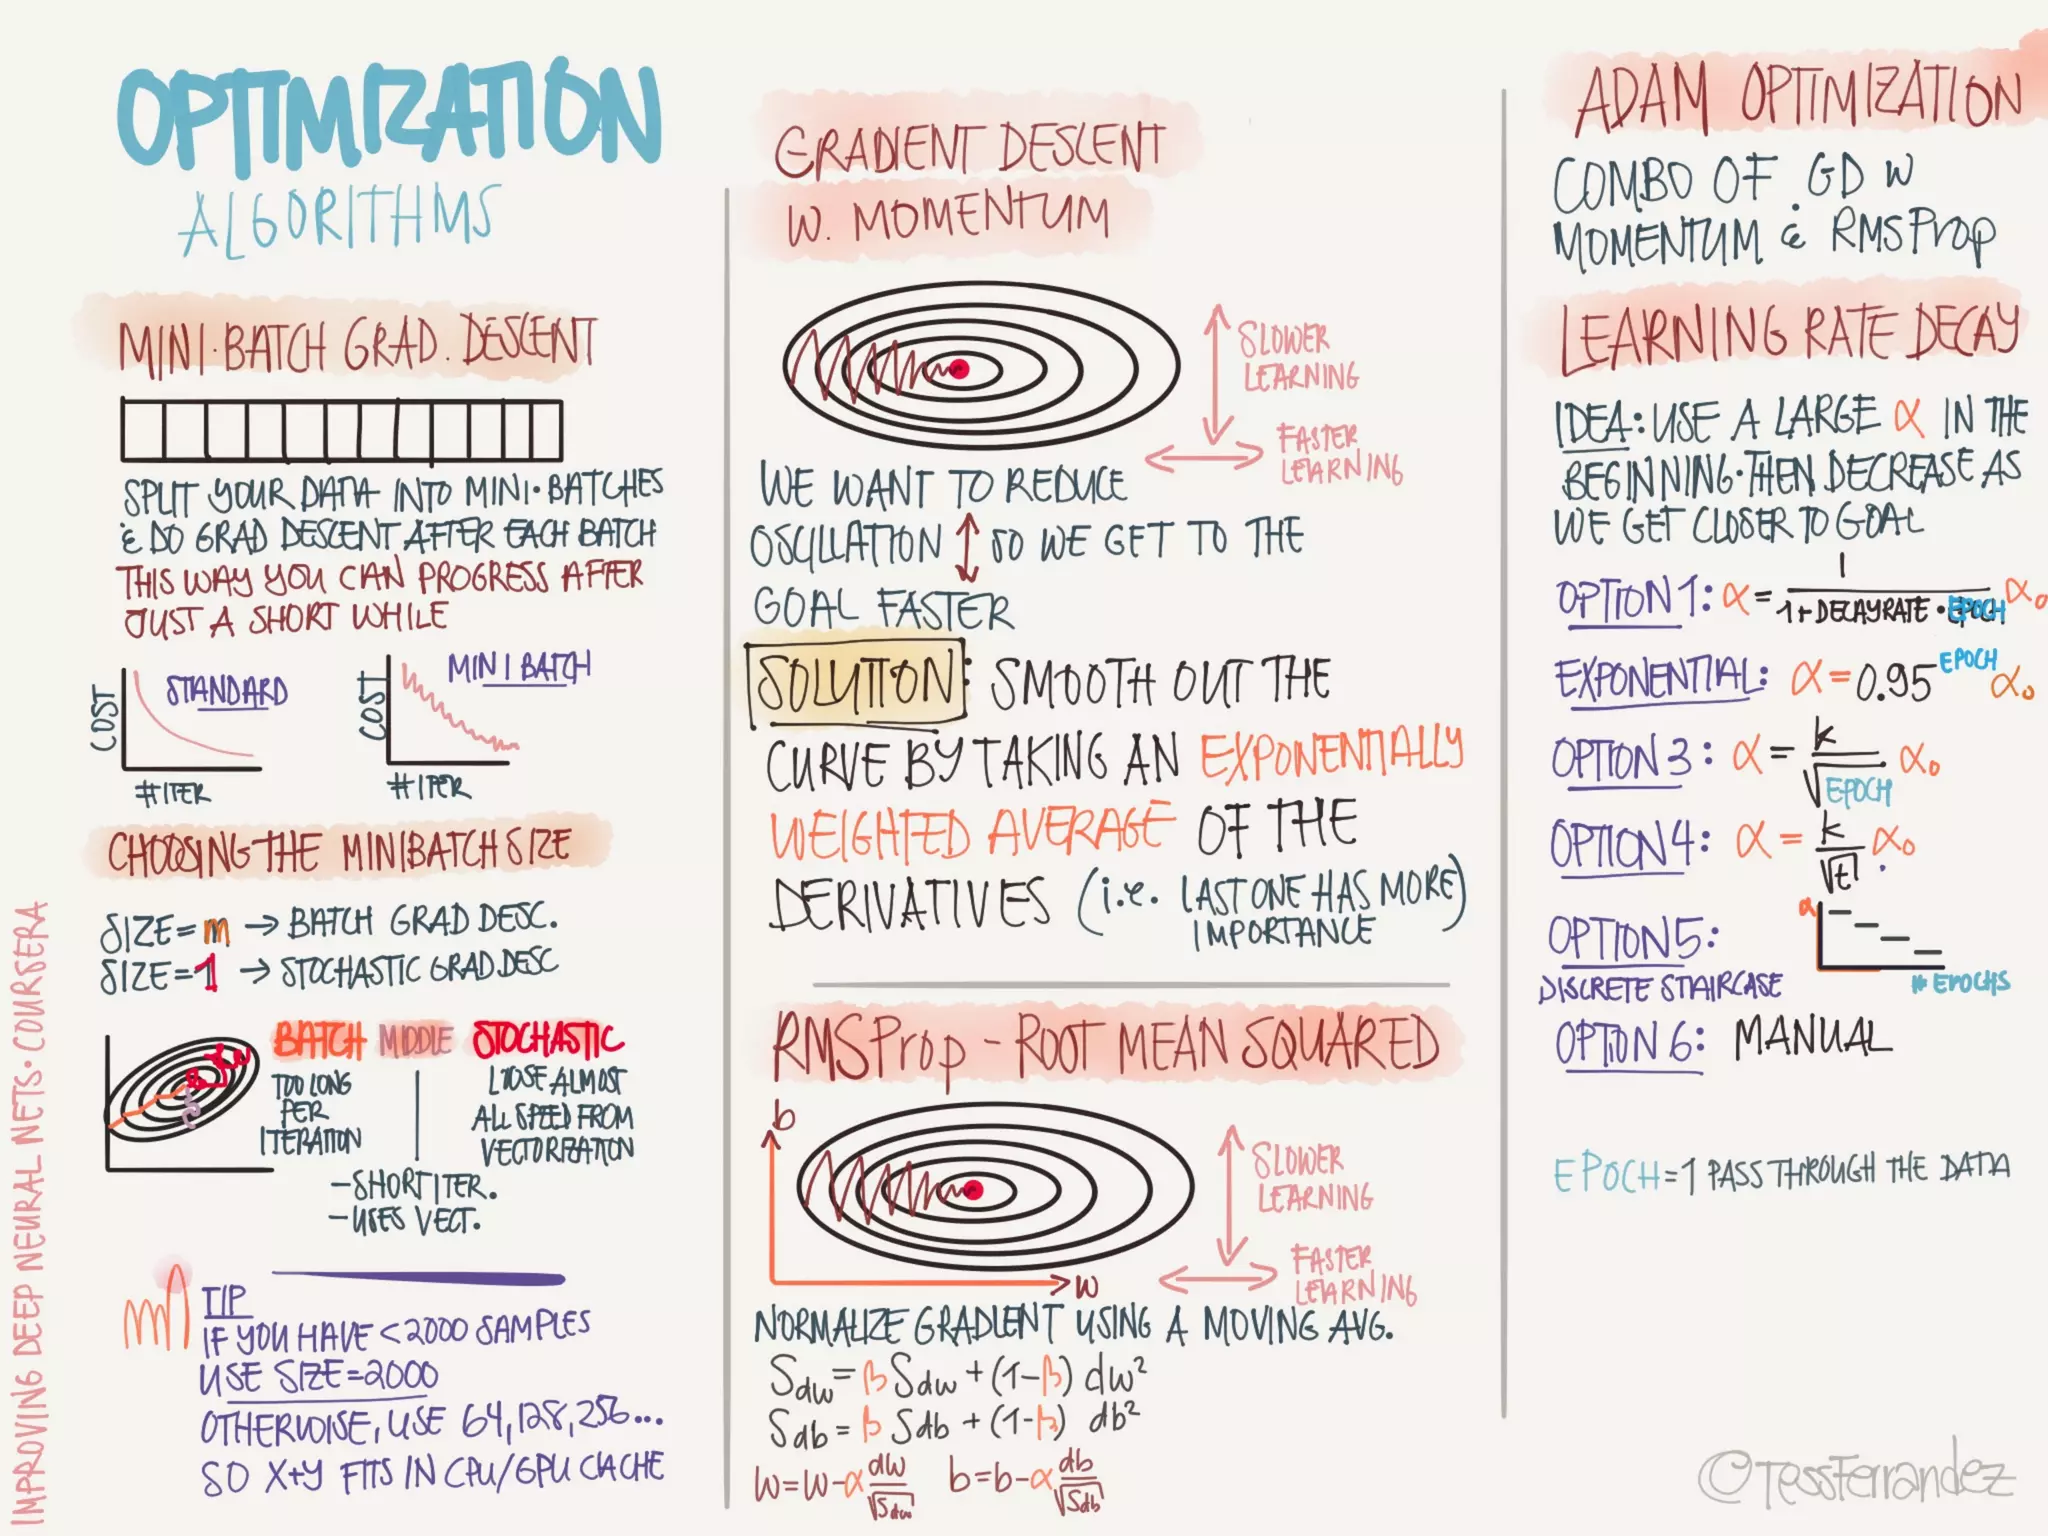 OPTIMIZATION
ALGORITHMS
MINI·BATCH GRAD. DESCENT
SPLIT YOUR DATA INTO MINI·BATCHES
& DO GRAD DESCENT AFTER EACH BATCH
THIS WAY YOU CAN PROGRESS AFTER
JUST A SHORT WHILE
COST
STANDARD
# ITER
COST
MINI BATCH
# ITER
CHOOSING THE MINIBATCH SIZE
SIZE=m → BATCH GRAD DESC.
SIZE=1 → STOCHASTIC GRAD.DESC
BATCH MIDDLE STOCHASTIC
TOO LONG
PER
ITERATION
LOOSE ALMOST
ALL SPEED FROM
VECTORIZATION
-SHORT ITER.
-USES VECT.
TIP
IF YOU HAVE <2000 SAMPLES
USE SIZE=2000
OTHERWISE, USE 64,128,256...
SO X+Y FITS IN CPU/GPU CACHE
IMPROVING DEEP NEURAL NETS·COURSERA
GRADIENT DESCENT
W. MOMENTUM
SLOWER
LEARNING
FASTER
LEARNING
WE WANT TO REDUCE
OSCILLATION ↕ SO WE GET TO THE
GOAL FASTER
SOLUTION: SMOOTH OUT THE
CURVE BY TAKING AN EXPONENTIALLY
WEIGHTED AVERAGE OF THE
DERIVATIVES (i.e. LAST ONE HAS MORE
IMPORTANCE)
RMSProp - ROOT MEAN SQUARED
b
w
SLOWER
LEARNING
FASTER
LEARNING
NORMALIZE GRADIENT USING A MOVING AVG.
Sdw = β Sdw + (1-β) dw²
Sdb = β Sdb + (1-β) db²
w=w-α dw/√Sdw b=b-α db/√Sdb
ADAM OPTIMIZATION
COMBO OF GD W
MOMENTUM & RMSProp
LEARNING RATE DECAY
IDEA: USE A LARGE α IN THE
BEGINNING·THEN DECREASE AS
WE GET CLOSER TO GOAL
OPTION 1: α = 1/(1+DECAYRATE·EPOCH) α₀
EXPONENTIAL: α=0.95^EPOCH α₀
OPTION 3: α = k/√EPOCH · α₀
OPTION 4: α = k/√t · α₀
OPTION 5:
DISCRETE STAIRCASE
α
# EPOCHS
OPTION 6: MANUAL
EPOCH=1 PASS THROUGH THE DATA
©TessFerrandez